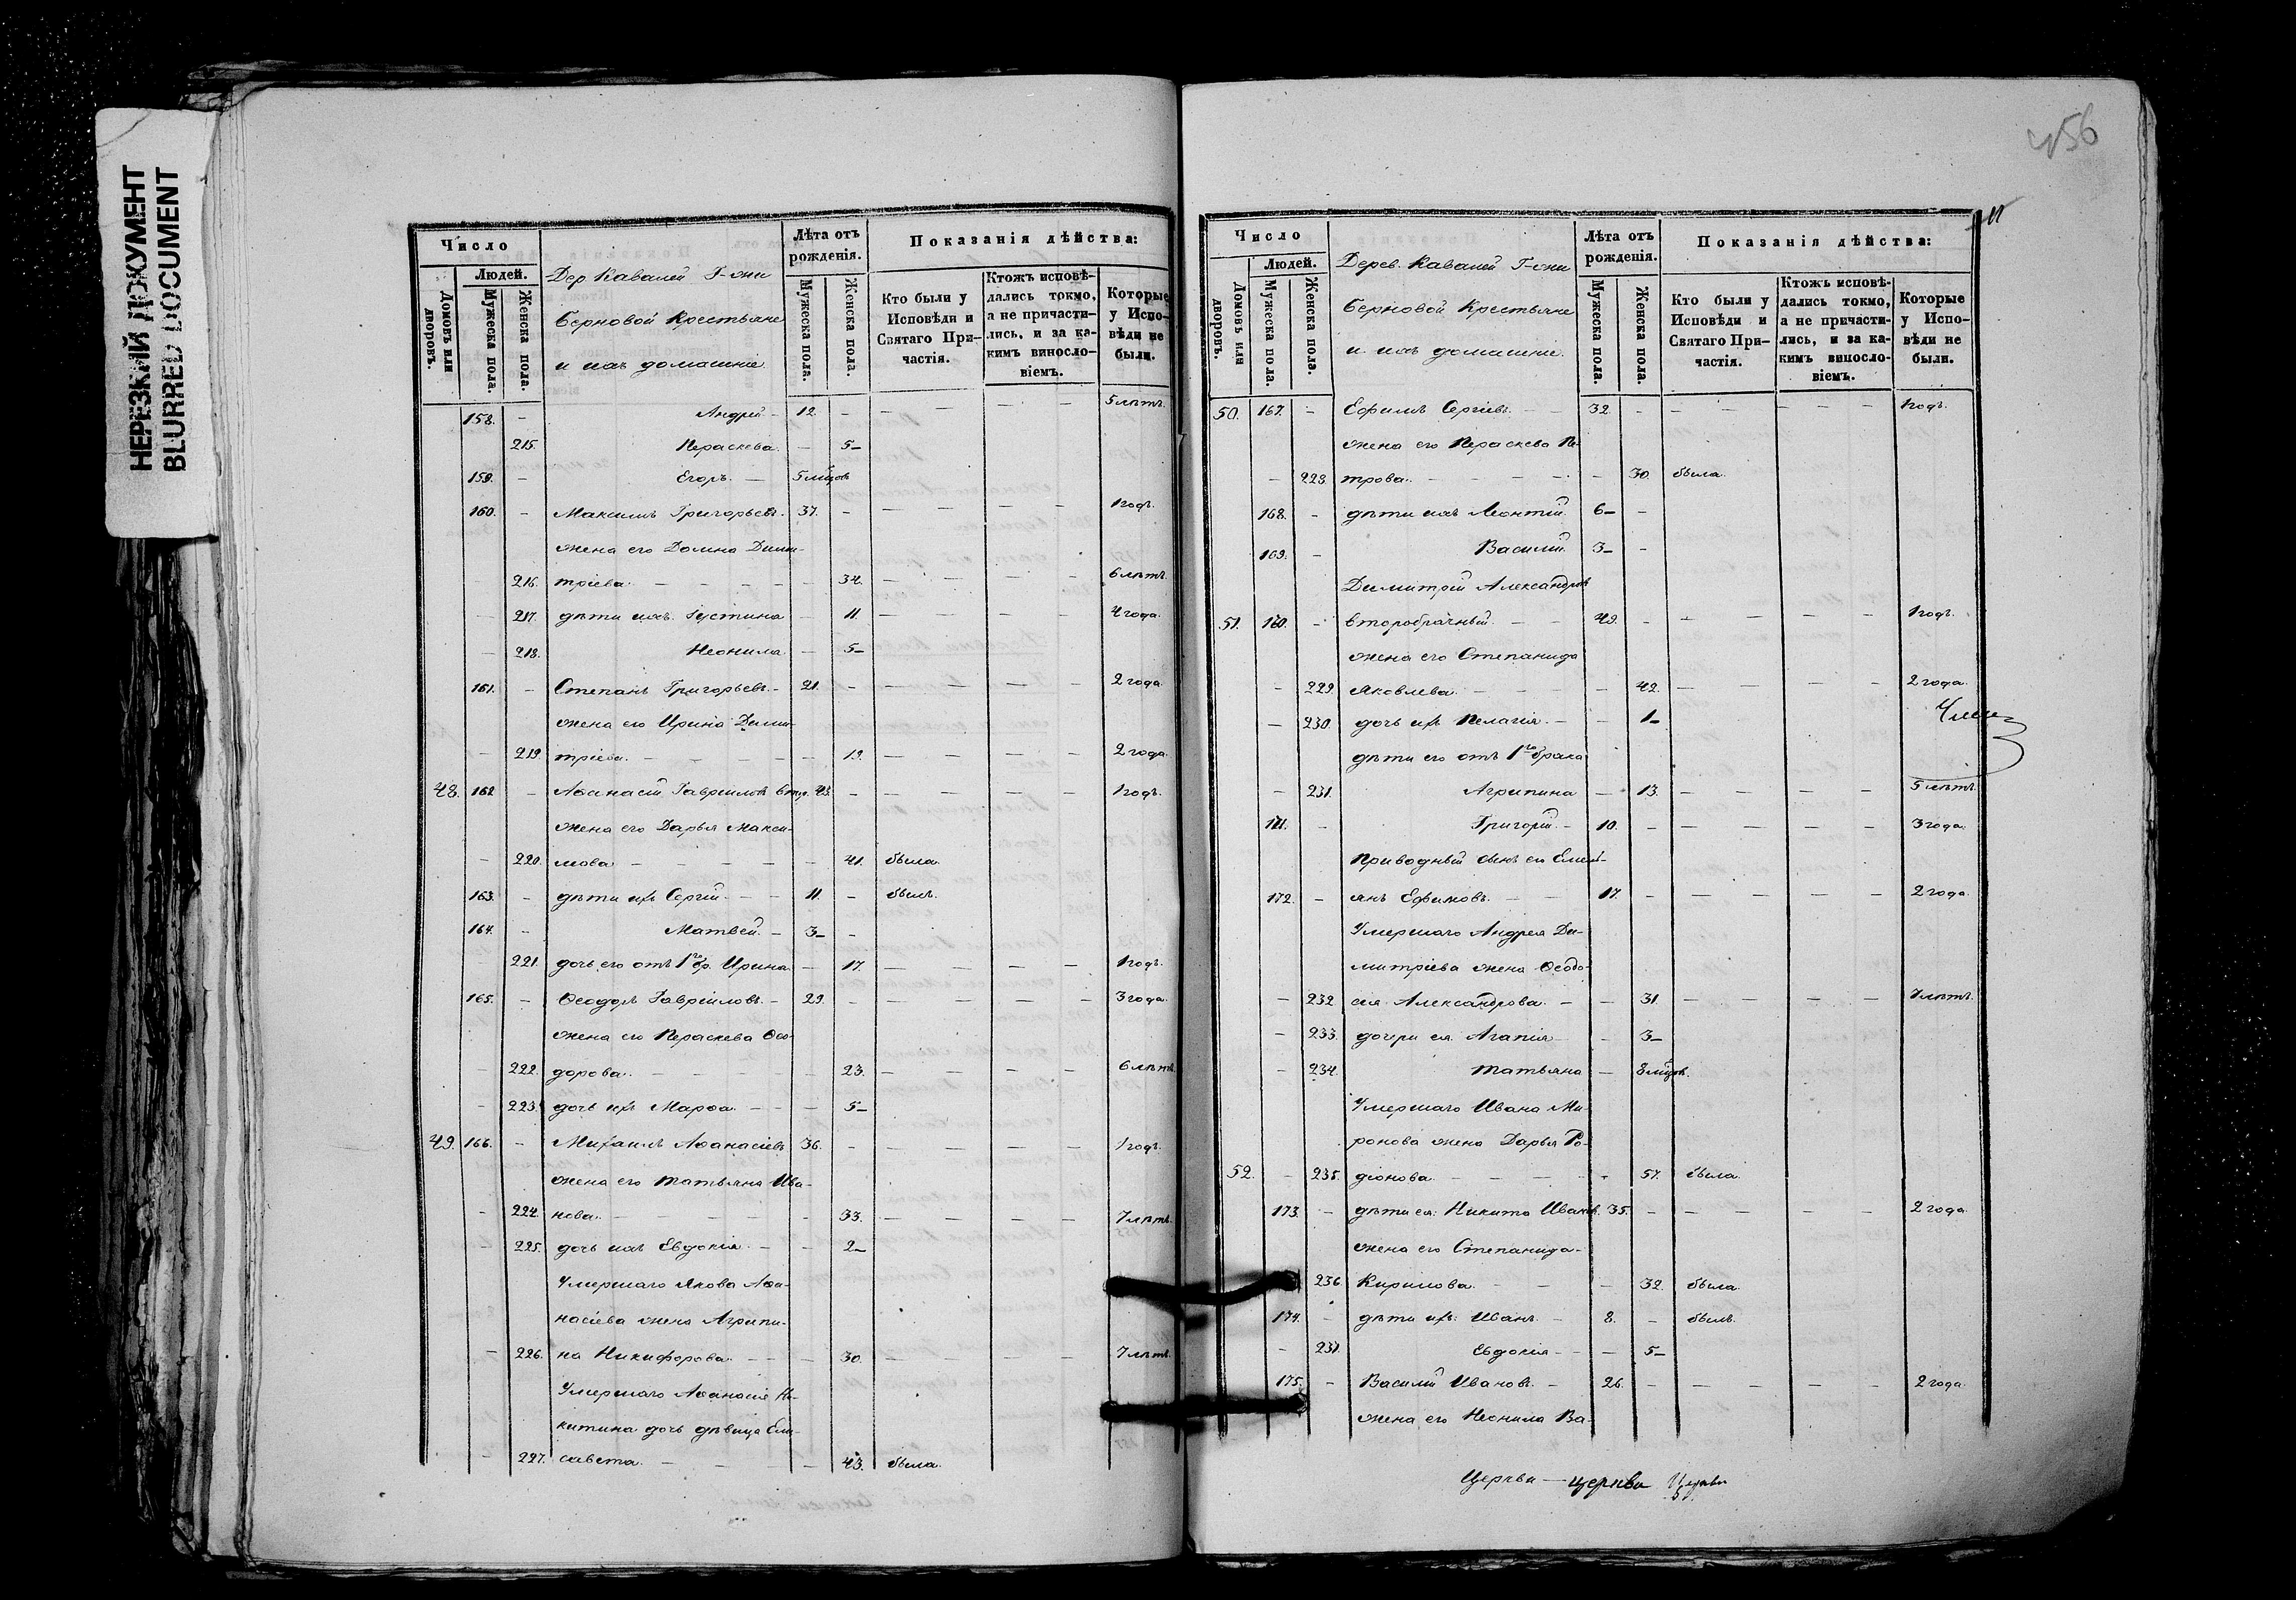 НЕРЕЗКИЙ ДОКУМЕНТ
BLURRED DOCUMENT
Число
Людей.
Домовъ или дворовъ.
Мужеска пола.
Женска пола.
Дер Каваней Г-жи
Берновой Крестьяне
и ихъ домашніе
Лѣта отъ рожденія.
Мужеска пола.
Женска пола.
Показанія дѣйства:
Кто были у Исповѣди и Святаго При-
частія.
Ктожъ исповѣ-
дались токмо,
а не причасти-
лись, и за ка-
кимъ виносло-
віемъ.
Которые
у Испо-
вѣди не
были.
158. - Андрей - 12. - - - - - 5 лѣтъ.
215. Параскева. - 5-
159. - Егоръ. - 5 мѣцовъ
160. - Максимъ Григорьевъ. 37. - - - - - 1 годъ.
жена его Домна Дими-
- 216. тріева. - - - - - 34. - - - - 6 лѣтъ.
- 217. дѣти ихъ. Іустина - 11. - - - - 4 года.
- 218. Неонила - 5-
161. - Степанъ Григорьевъ. - 21. - - - - - 2 года.
жена его Ирина Дими-
- 219. тріева. - - - - - 19. - - - - 2 года.
48. 162 - Аѳанасій Гавриловъ втор. 43. - - - - - 1 годъ.
жена его Дарья Макси-
- 220. мова - - - - - 41. была.
163. - дѣти ихъ Сергій. - - 11. - былъ.
164. - Матвей. - 3- -
221. дочь его отъ 1го бр. Ирина. - 17. - - - - 1 годъ.
165. - Ѳеодоръ Гавриловъ. - 29. - - - - - 3 года.
жена его Параскева Ѳео-
- 222. дорова. - - - - - 23. - - - - 6 лѣтъ.
- 223. дочь ихъ Марѳа. - - - 5-
49. 166. - Михаилъ Аѳанасіевъ 36. - - - - - 1 годъ.
жена его Татьяна Ива-
- 224. нова. - - - - - 33. - - - - 7 лѣтъ.
- 225. дочь ихъ Евдокія. - - 2-
Умершаго Якова Аѳа-
насіева жена Агрипи-
- 226. на Никифорова. - - - 30. - - - - 7 лѣтъ.
Умершаго Аѳанасія Ни-
китина дочь дѣвица Ели-
- 227. савета. - - - - 43. была.
456
Число
Людей.
Домовъ или дворовъ.
Мужеска пола.
Женска пола.
Дерев. Каваней Г-жи
Берновой Крестьяне
и ихъ домашніе.
Лѣта отъ рожденія.
Мужеска пола.
Женска пола.
Показанія дѣйства:
Кто были у Исповѣди и Святаго При-
частія.
Ктожъ исповѣ-
дались токмо,
а не причасти-
лись, и за ка-
кимъ виносло-
віемъ.
Которые
у Испо-
вѣди не
были.
50. 167. - Ефимъ Сергіевъ. - - 32. - - - - - 1 годъ.
жена его Параскева Пе-
- 228. трова. - - - - - 30. была.
168. - дѣти ихъ Леонтій 6- -
169. - Василій. 3- -
Димитрій Александровъ
51. 170. - второбрачный. - - 49. - - - - - 1 годъ.
жена его Степанида
- 229. Яковлева. - - - - 42. - - - - 2 года.
- 230. дочь ихъ Пелагія. - - 1-
дѣти его отъ 1го брака
- 231. Агрипина - 13. - - - - 5 лѣтъ.
171. - Григорій. - 10. - - - - - 3 года.
Приводный сынъ ея Емел-
172. - янъ Ефимовъ. - - 17. - - - - - 2 года.
Умершаго Андрея Ди-
митріева жена Ѳеодо-
- 232 сія Александрова. - - 31. - - - - 7 лѣтъ.
- 233. дочери ея Агапія - - 3-
- 234. Татьяна - 8 мѣцов.
Умершаго Ивана Ми-
ронова жена Дарья Ро-
52. - 235. діонова. - - - - - 57. была.
173. - дѣти ея: Никита Ивановъ. 35. - - - - - 2 года.
жена его Степанида-
236. Кирилова. - - - 32. была.
174. - дѣти ихъ: Иванъ. - 8. - былъ.
- 237. Евдокія - - - 5-
175. - Василій Ивановъ. - 26. - - - - - 2 года.
жена его Неонила Ва-
Церкви - церкви Церкви